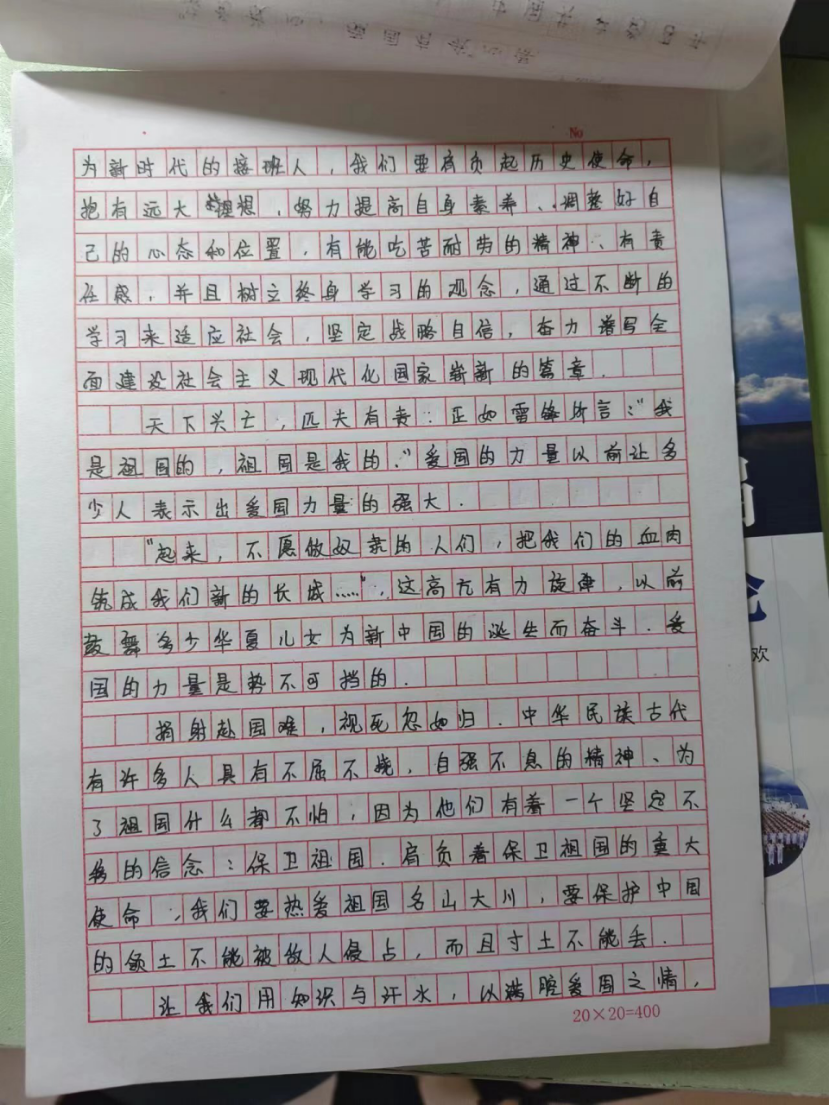 No
为新时代的接班人,我们要肩负起历史使命,
抱有远大理想,努力提高自身素养、调整好自
己的心态和位置,有能吃苦耐劳的精神、有责
任感,并且树立终身学习的观念,通过不断的
学习来适应社会,坚定战略自信,奋力谱写全
面建设社会主义现代化国家崭新的篇章.
天下兴亡,匹夫有责.正如雷锋所言:"我
是祖国的,祖国是我的."爱国的力量以前让多
少人表示出爱国力量的强大.
"起来,不愿做奴隶的人们,把我们的血肉
筑成我们新的长城……",这高亢有力旋律,以前
鼓舞多少华夏儿女为新中国的诞生而奋斗.爱
国的力量是势不可挡的.
捐射赴国难,视死忽如归.中华民族古代
有许多人具有不屈不挠,自强不息的精神、为
了祖国什么都不怕,因为他们有着一个坚定不
移的信念:保卫祖国.肩负着保卫祖国的重大
使命.我们要热爱祖国名山大川,要保护中国
的领土不能被敌人侵占,而且寸土不能丢.
让我们用知识与汗水,以满腔爱国之情,
20×20=400
欢